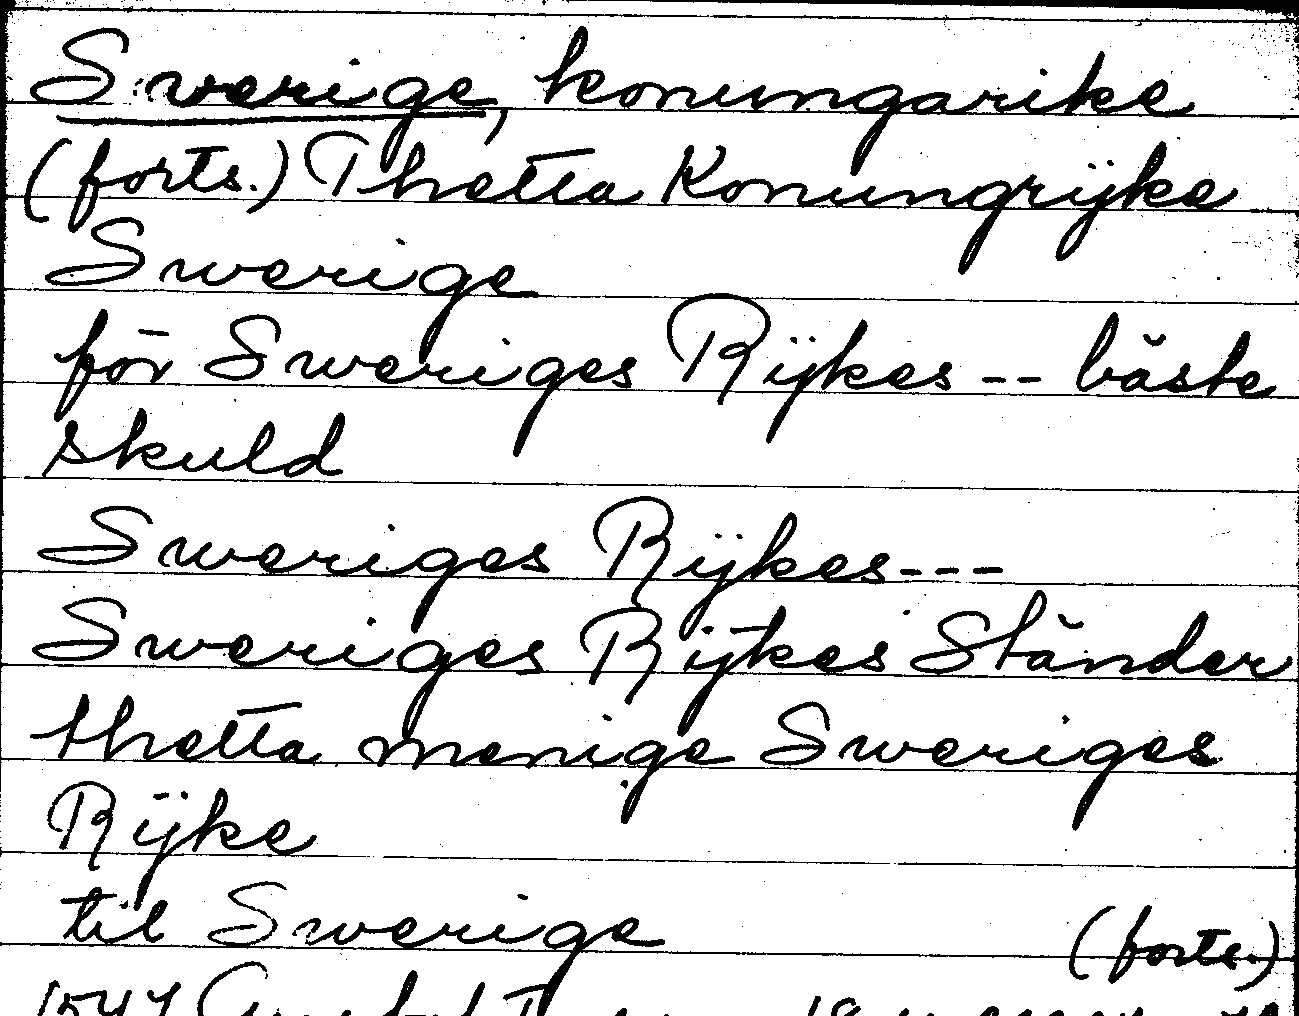 Sverige, konungarike
(forts.) Thetta Konungrijke
Swerige
för Sweriges Rijkes -- bäste
skuld
Sweriges Rijkes---
Sweriges Rijkes Ständer
thetta menige Sweriges
Rijke
til Swerige (forts.)